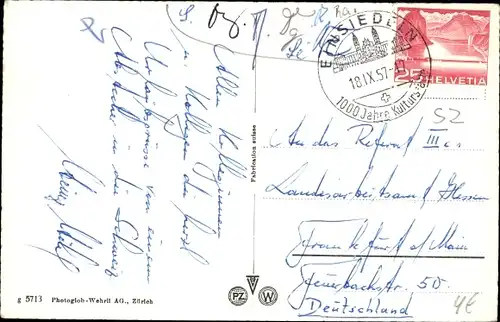 Allen Kolleginnen
u. Kollegen die herzl
Urlaubsgrüsse von einem
Abstecher in die Schweiz
Fabrication suisse
g 5713 Photoglob-Wehrli AG., Zürich
PZ
W
EINSIEDELN
18.IX.57
1000 Jahre Kultur
25 HELVETIA
52
An das Referat III
Landesarbeitsamt Hessen
Frankfurt a/Main
Feuerbachstr. 50.
Deutschland
4€